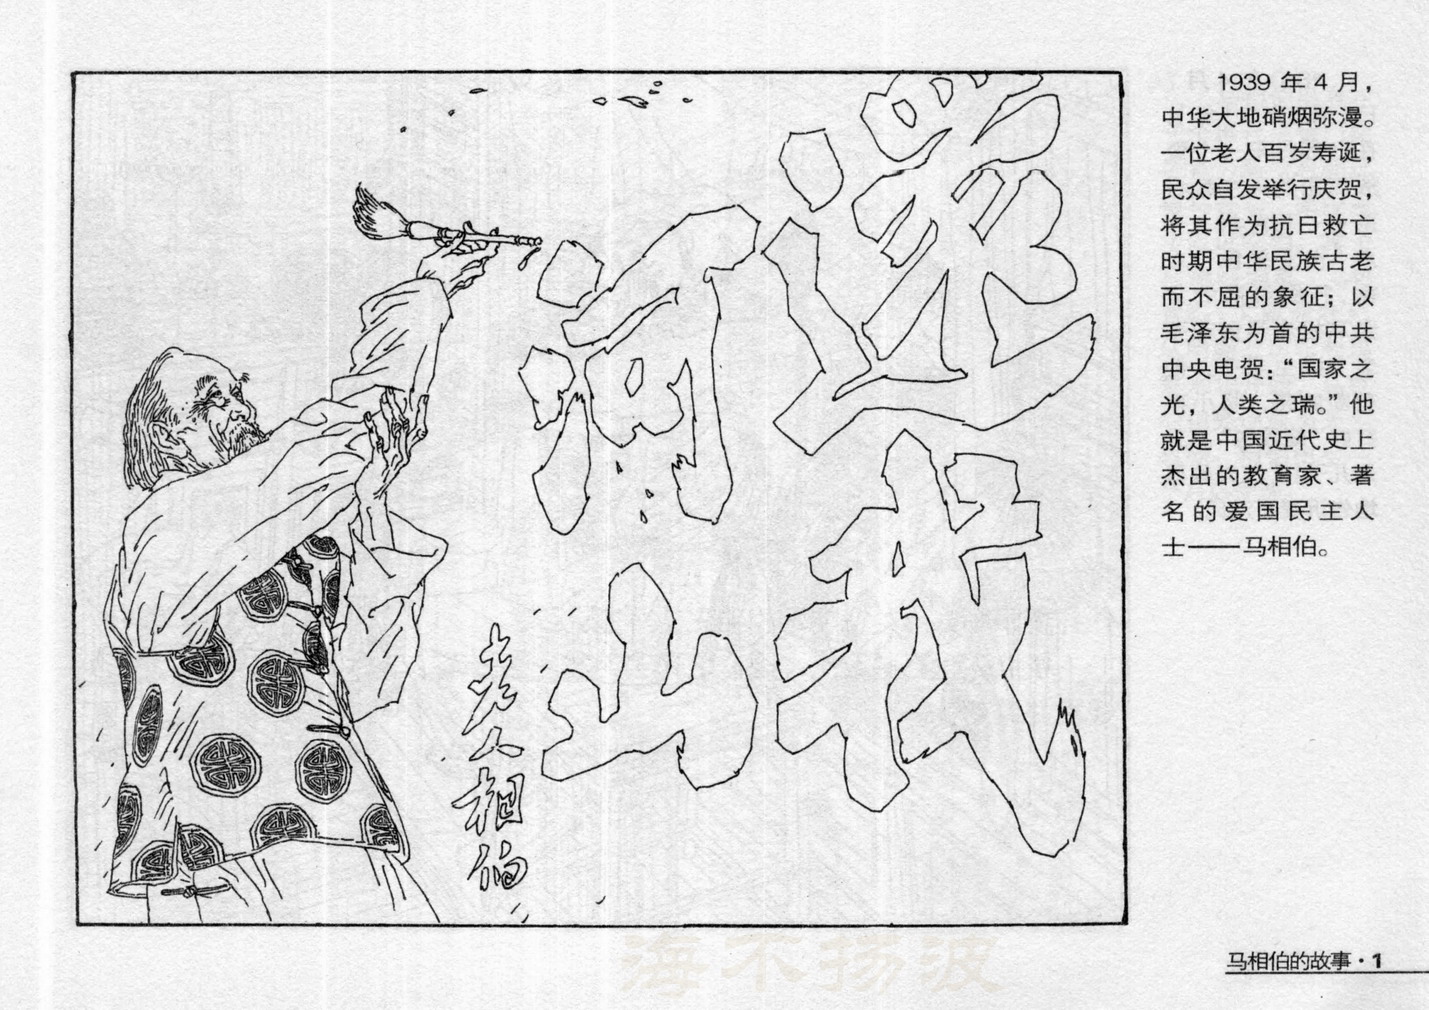 還我
河山
老人相伯
1939 年 4 月，
中华大地硝烟弥漫。
一位老人百岁寿诞，
民众自发举行庆贺，
将其作为抗日救亡
时期中华民族古老
而不屈的象征；以
毛泽东为首的中共
中央电贺：“国家之
光，人类之瑞。”他
就是中国近代史上
杰出的教育家、著
名的爱国民主人
士——马相伯。
海不扬波
马相伯的故事·1